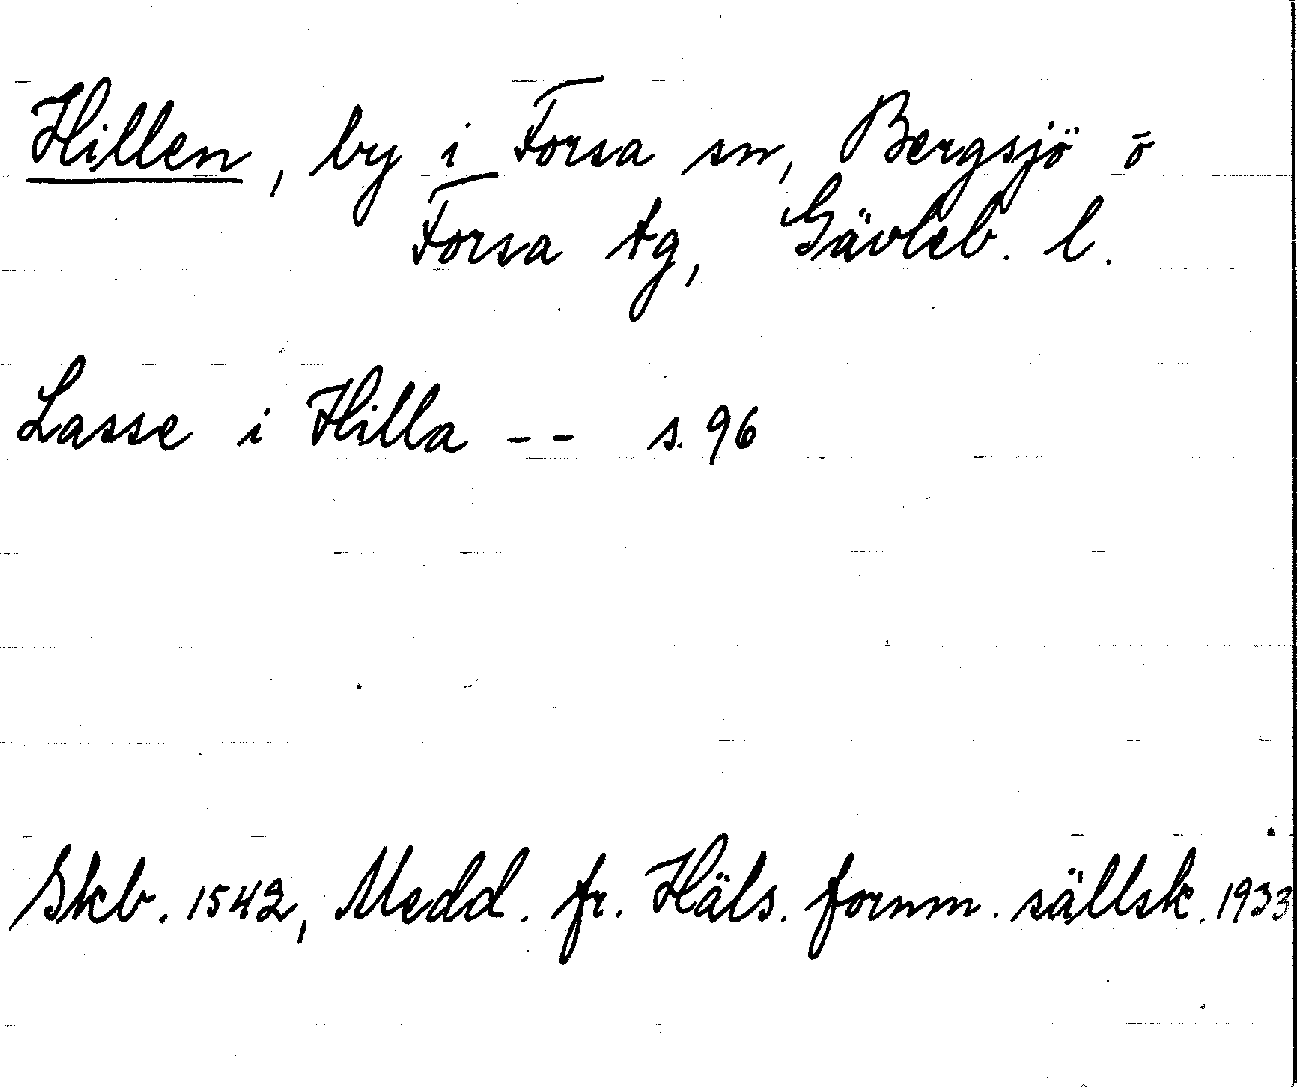 Hillen, by i Forsa sn, Bergsjö o
Forsa tg, Gävleb. l.
Lasse i Hilla -- s. 96
Skb. 1542, Medd. fr. Häls. fornm. sällsk. 1933